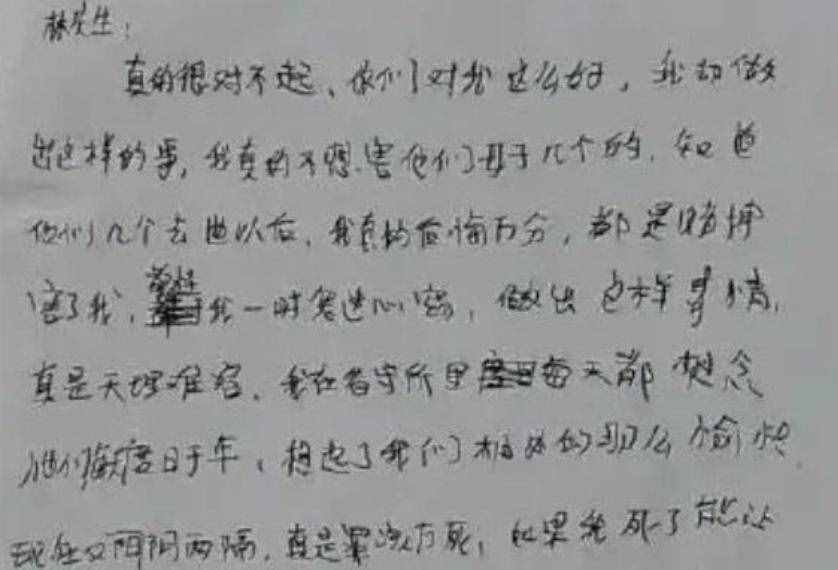 林先生：
真的很对不起、你们对我这么好，我却做
出这样的事，我真的不想害他们母子几个的，知道
他们几个去世以后，我真的后悔万分，都是赌博
害了我，我一时鬼迷心窍，做出这样事情，
真是天理难容、我在看守所里每天都想念
他们度日于年，想起了我们相处的那么愉快
现在又阴阳两隔，真是罪该万死，如果我死了能让